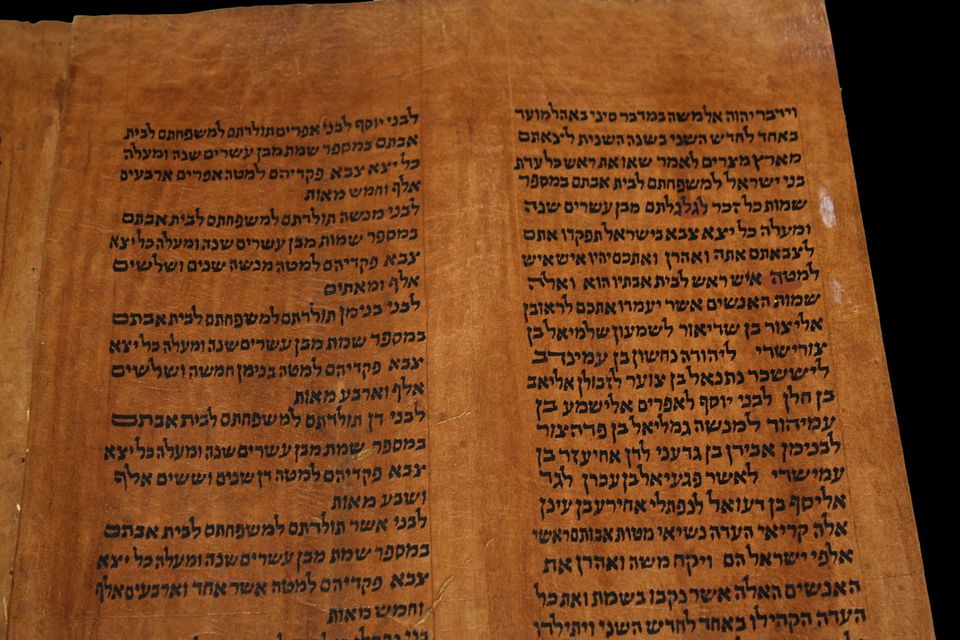 וידבר יהוה אל משה במדבר סיני באהל מועד
באחד לחדש השני בשנה השנית לצאתם
מארץ מצרים לאמר שאו את ראש כל עדת
בני ישראל למשפחתם לבית אבתם במספר
שמות כל זכר לגלגלתם מבן עשרים שנה
ומעלה כל יצא צבא בישראל תפקדו אתם
לצבאתם אתה ואהרן ואתכם יהיו איש איש
למטה איש ראש לבית אבתיו הוא ואלה
שמות האנשים אשר יעמדו אתכם לראובן
אליצור בן שדיאור לשמעון שלמיאל בן
צורישדי ליהודה נחשון בן עמינדב
ליששכר נתנאל בן צוער לזבולן אליאב
בן חלן לבני יוסף לאפרים אלישמע בן
עמיהוד למנשה גמליאל בן פדהצור
לבנימן אבידן בן גדעני לדן אחיעזר בן
עמישדי לאשר פגעיאל בן עכרן לגד
אליסף בן דעואל לנפתלי אחירע בן עינן
אלה קריאי העדה נשיאי מטות אבותם ראשי
אלפי ישראל הם ויקח משה ואהרן את
האנשים האלה אשר נקבו בשמת ואת כל
העדה הקהילו באחד לחדש השני ויתילדו
לבני יוסף לבני אפרים תולדתם למשפחתם לבית
אבתם במספר שמת מבן עשרים שנה ומעלה
כל יצא צבא פקדיהם למטה אפרים ארבעים
אלף וחמש מאות
לבני מנשה תולדתם למשפחתם לבית אבתם
במספר שמות מבן עשרים שנה ומעלה כל יצא
צבא פקדיהם למטה מנשה שנים ושלשים
אלף ומאתים
לבני בנימן תולדתם למשפחתם לבית אבתם
במספר שמת מבן עשרים שנה ומעלה כל יצא
צבא פקדיהם למטה בנימן חמשה ושלשים
אלף וארבע מאות
לבני דן תולדתם למשפחתם לבית אבתם
במספר שמת מבן עשרים שנה ומעלה כל יצא
צבא פקדיהם למטה דן שנים וששים אלף
ושבע מאות
לבני אשר תולדתם למשפחתם לבית אבתם
במספר שמת מבן עשרים שנה ומעלה כל יצא
צבא פקדיהם למטה אשר אחד וארבעים אלף
וחמש מאות